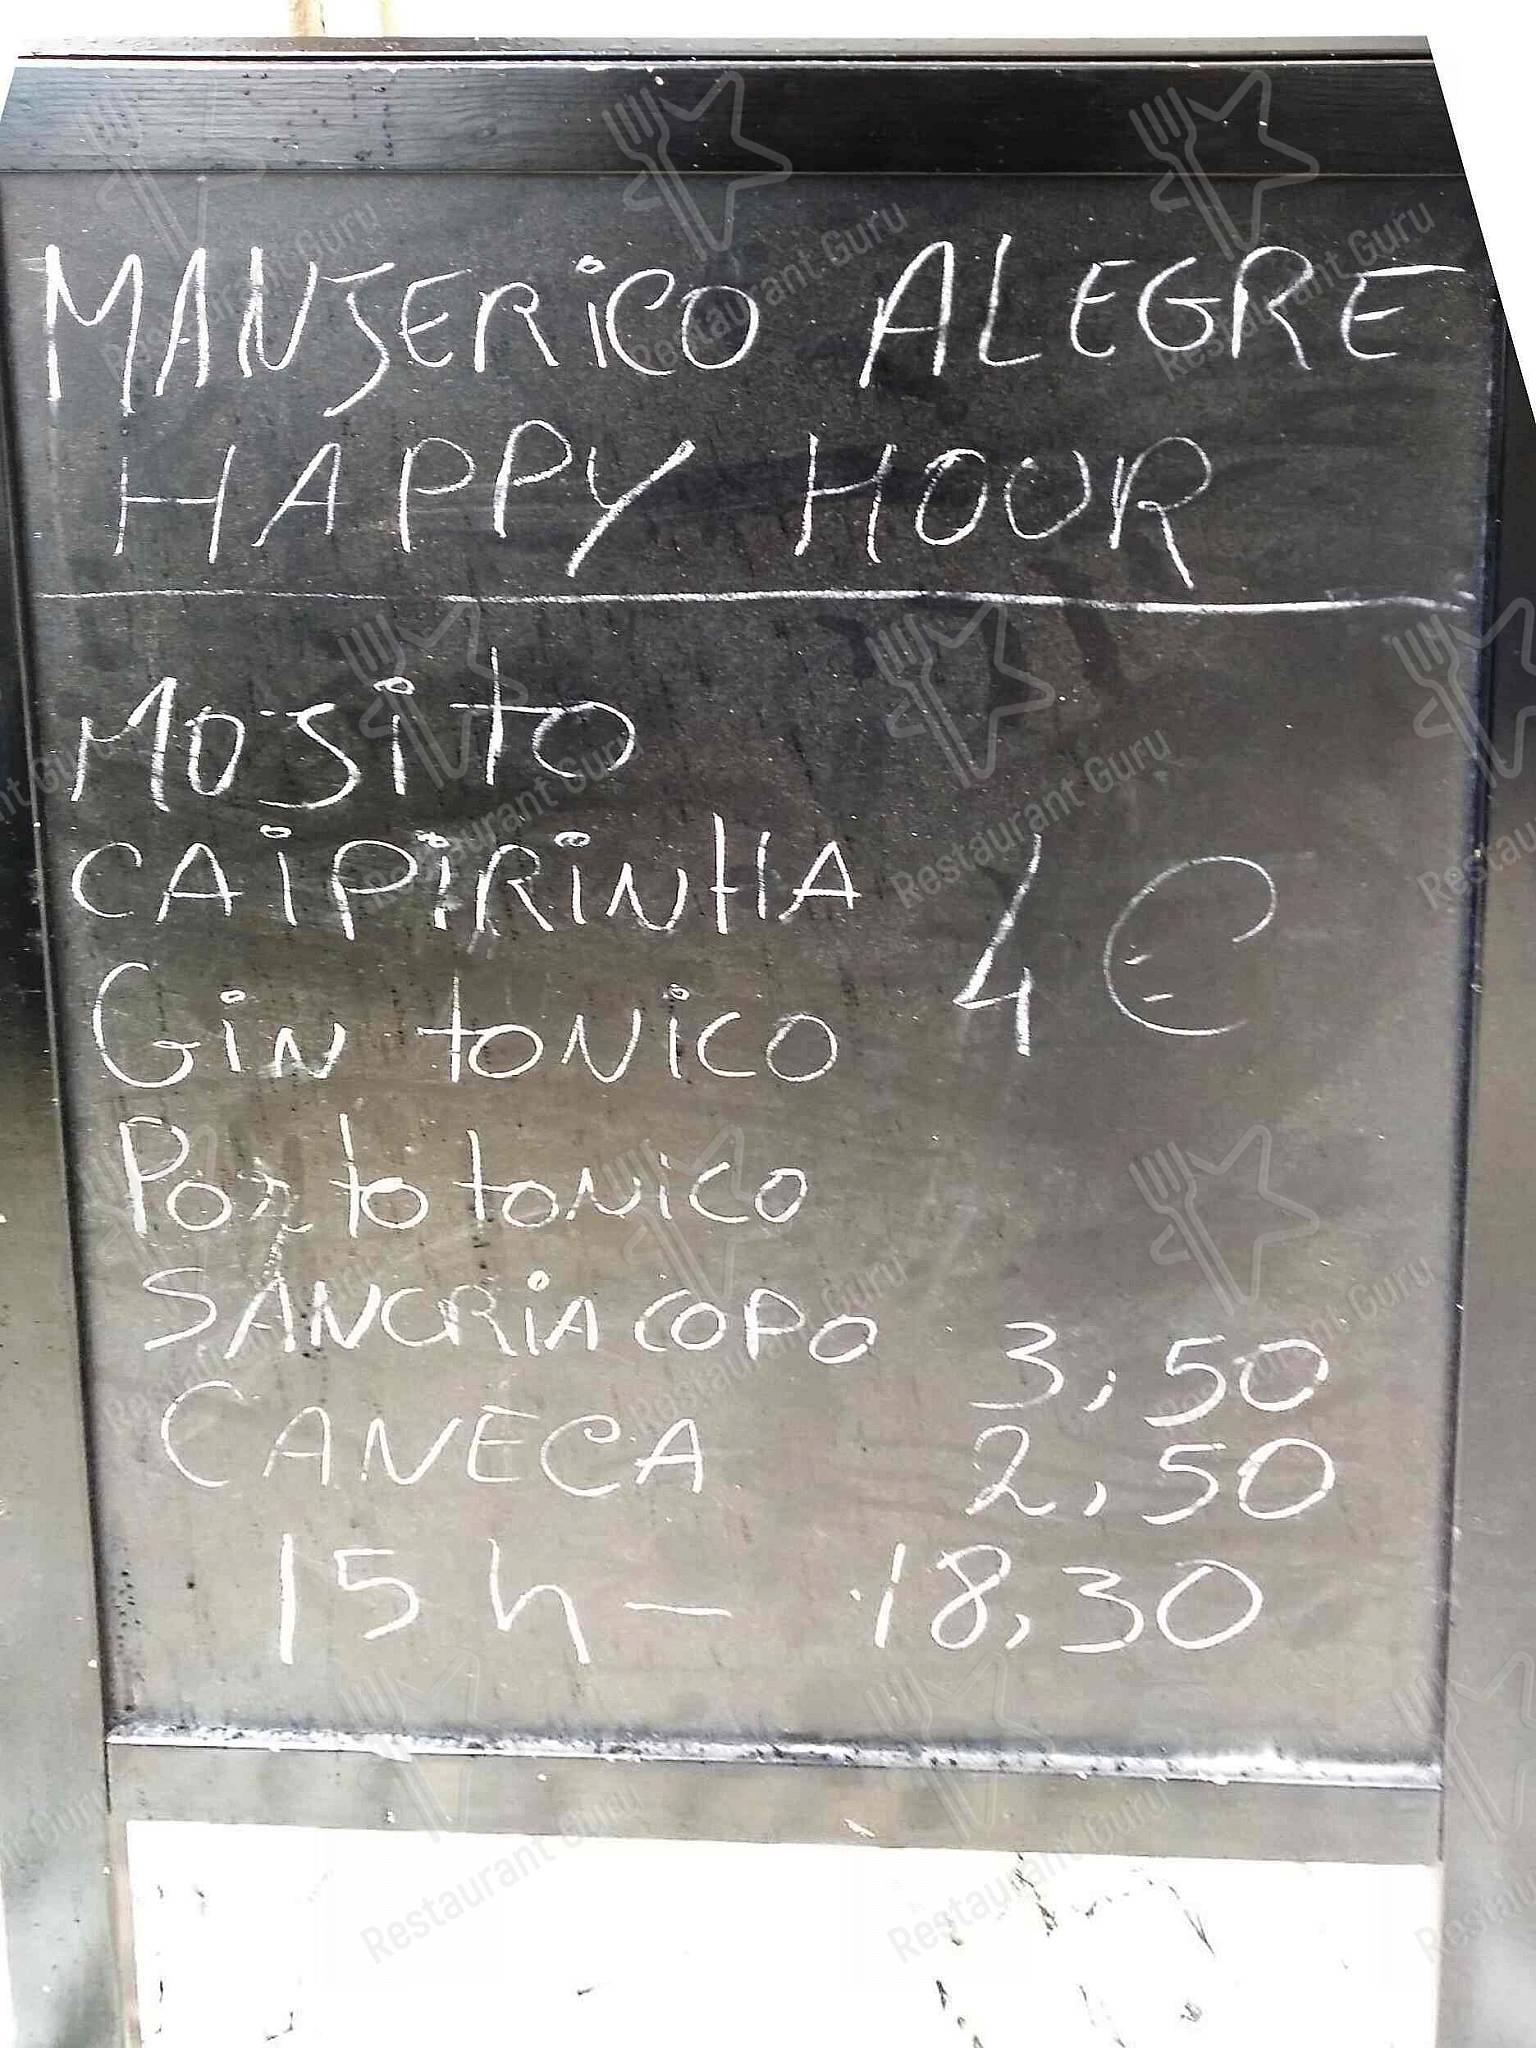 MANJERICO ALEGRE
HAPPY HOUR
MOJITO
CAIPIRINHA
4 €
GIN TONICO
PORTO TONICO
SANGRIA COPO 3,50
CANECA 2,50
15 h — 18,30
Restaurant Guru